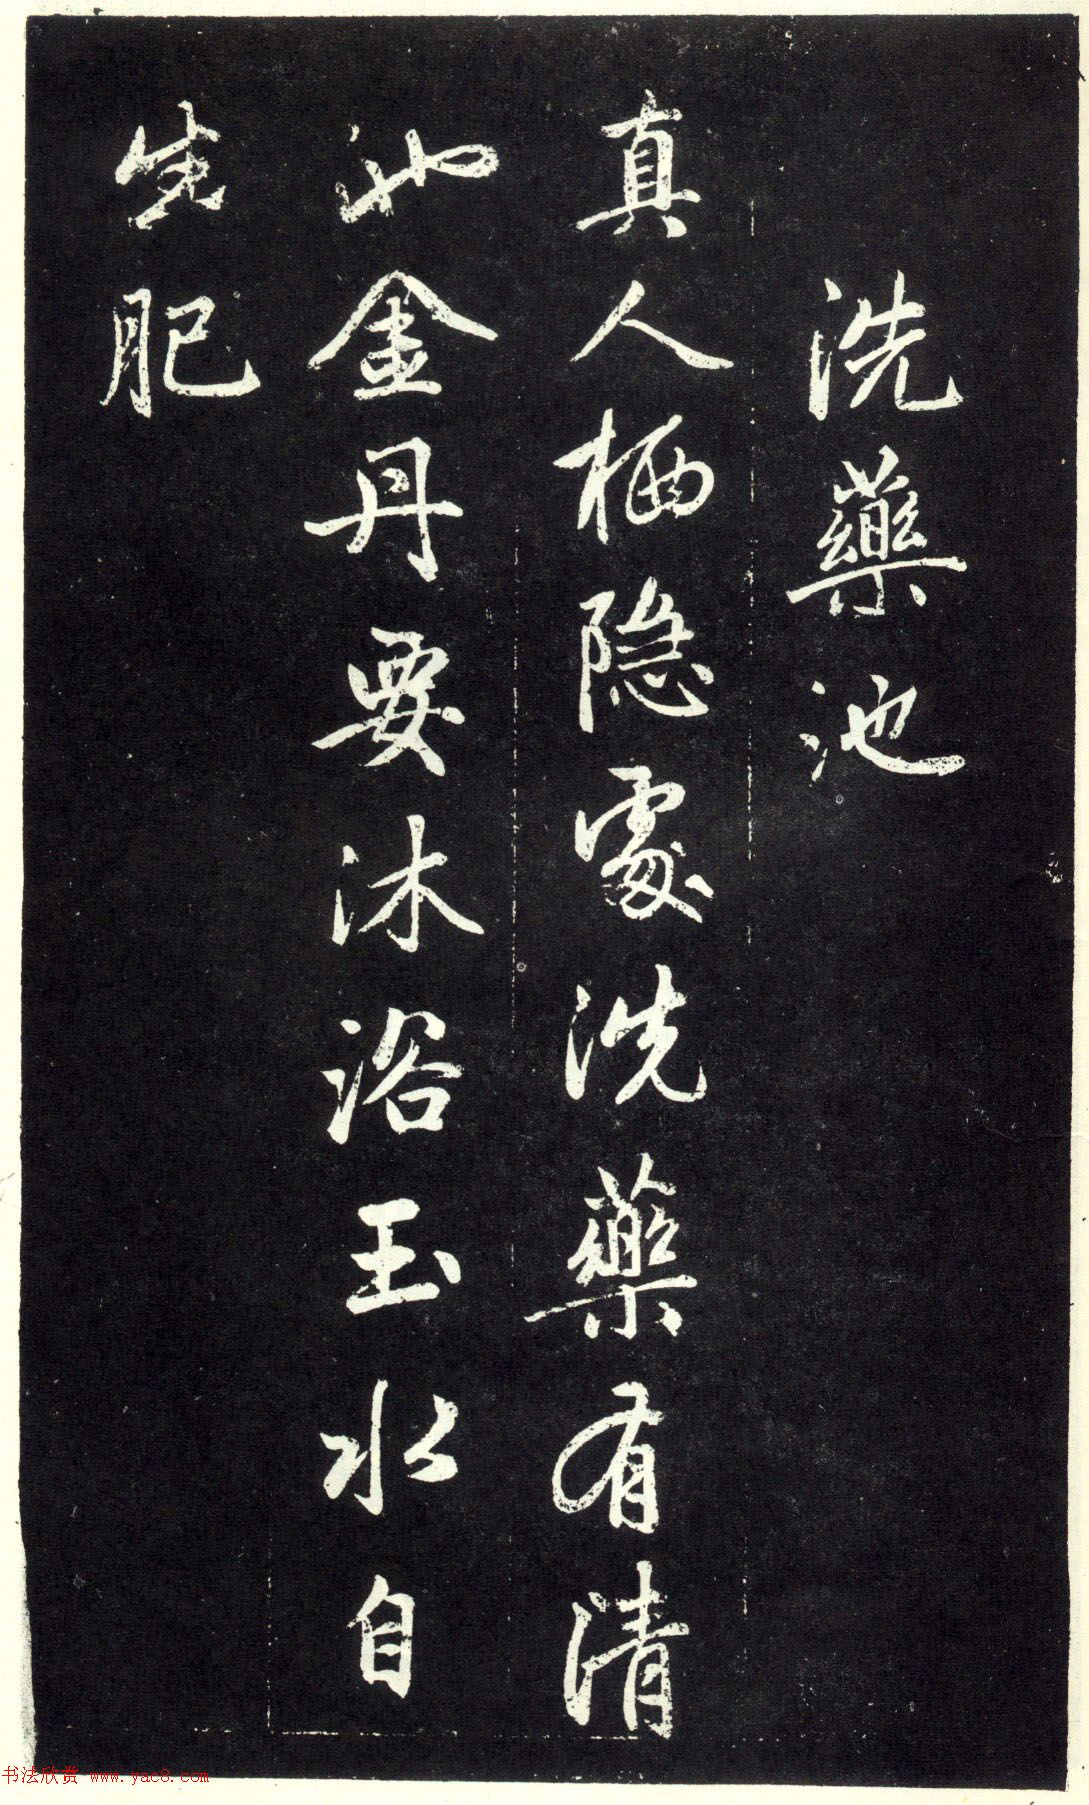 洗藥池
真人栖隐處洗藥有清
池金丹要沐浴玉水自
生肥
书法欣赏 www.yac8.com